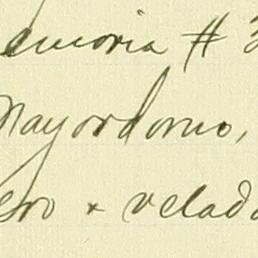 emoria # 3
Mayordomo,
ero + velado